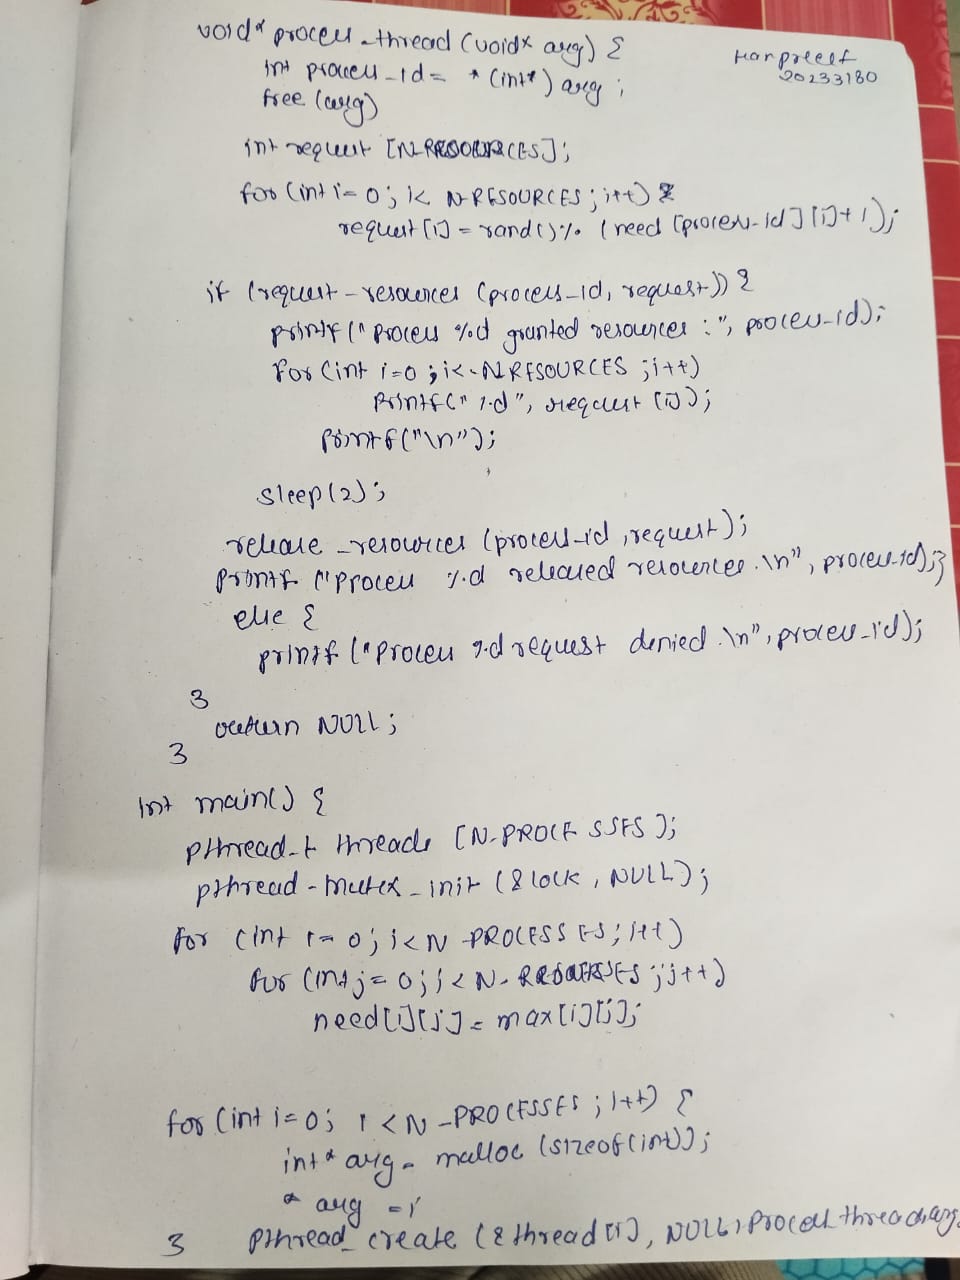 void* process_thread (void* arg) {
Harpreet
20233180
int process_id = *(int*) arg;
free (arg)
int request [N_RESOURCES];
for (int i = 0; i< N_RESOURCES; i++) {
request [i] = rand() % (need [process_id] [i] + 1);
if (request_resources (process_id, request)) {
printf ("Process %d granted resources :", process_id);
for (int i=0; i< N_RESOURCES; i++)
printf (" %d", request [i]);
printf ("\n");
sleep (2);
release_resources (process_id, request);
printf ("Process %d released resources.\n", process_id);}
else {
printf ("Process %d request denied.\n", process_id);
}
return NULL;
}
int main() {
pthread_t threads [N_PROCESSES];
pthread_mutex_init (&lock, NULL);
for (int i = 0; i<N_PROCESSES; i++)
for (int j = 0; j < N_RESOURCES; j++)
need[i][j] = max[i][j];
for (int i = 0; i < N_PROCESSES; i++) {
int* arg = malloc (sizeof(int));
* arg = i
} pthread_create (&thread [i], NULL, process_thread, arg